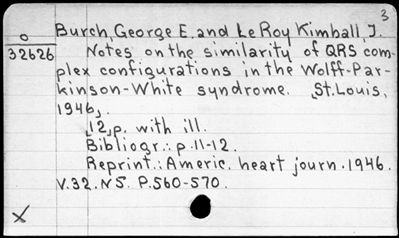 3
Burch, George E. and Le Roy Kimball, J.
0
32626
Notes on the similarity of QRS com-
plex configurations in the Wolff-Par-
kinson-White syndrome. [St. Louis,
1946].
[12]p. with ill.
Bibliogr.: p. 11-12.
Reprint.: Americ. heart journ. 1946.
V. 32. N 5. P. 560-570.
X